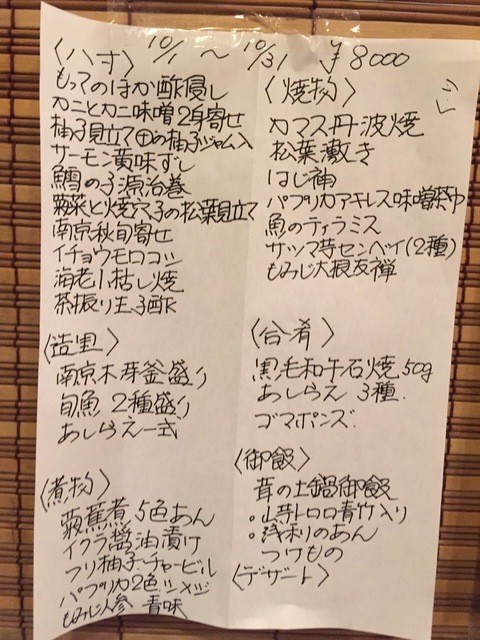 10/1 〜 10/31 ¥8000
〈八寸〉
もってのほか酢浸し
カニとカニ味噌2身寄せ
柚子見立て の柚子ジャム入
サーモン黄味ずし
鱈の子源治巻
菊菜と焼穴子の松葉見立て
南京秋旬寄せ
イチョウモロコシ
海老小枯し焼
茶振り生子酢
〈造里〉
南京木芽釜盛り
旬魚 2種盛り
あしらえ一式
〈煮物〉
蕪煮 5色あん
イクラ醤油漬け
フリ柚子 チャービル
パプリカ2色 シメジ
もみじ人参 青味
〈焼物〉
カマス丹波焼
松葉敷き
はじ神
パプリカアキレス味噌茶巾
魚のティラミス
サツマ芋センベイ(2種)
もみじ大根友禅
〈合肴〉
黒毛和牛石焼50g
あしらえ 3種.
ゴマポンズ.
〈御飯〉
茸の土鍋御飯
。山芋トロロ青竹入り
。浅利のあん
つけもの
〈デザート〉